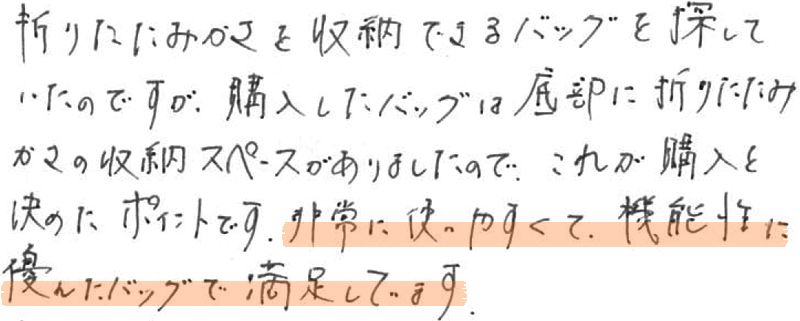 折りたたみかさを収納できるバッグを探して
いたのですが、購入したバッグは底部に折りたたみ
かさの収納スペースがありましたので、これが購入を
決めたポイントです。非常に使いやすくて、機能性に
優れたバッグで満足しています。